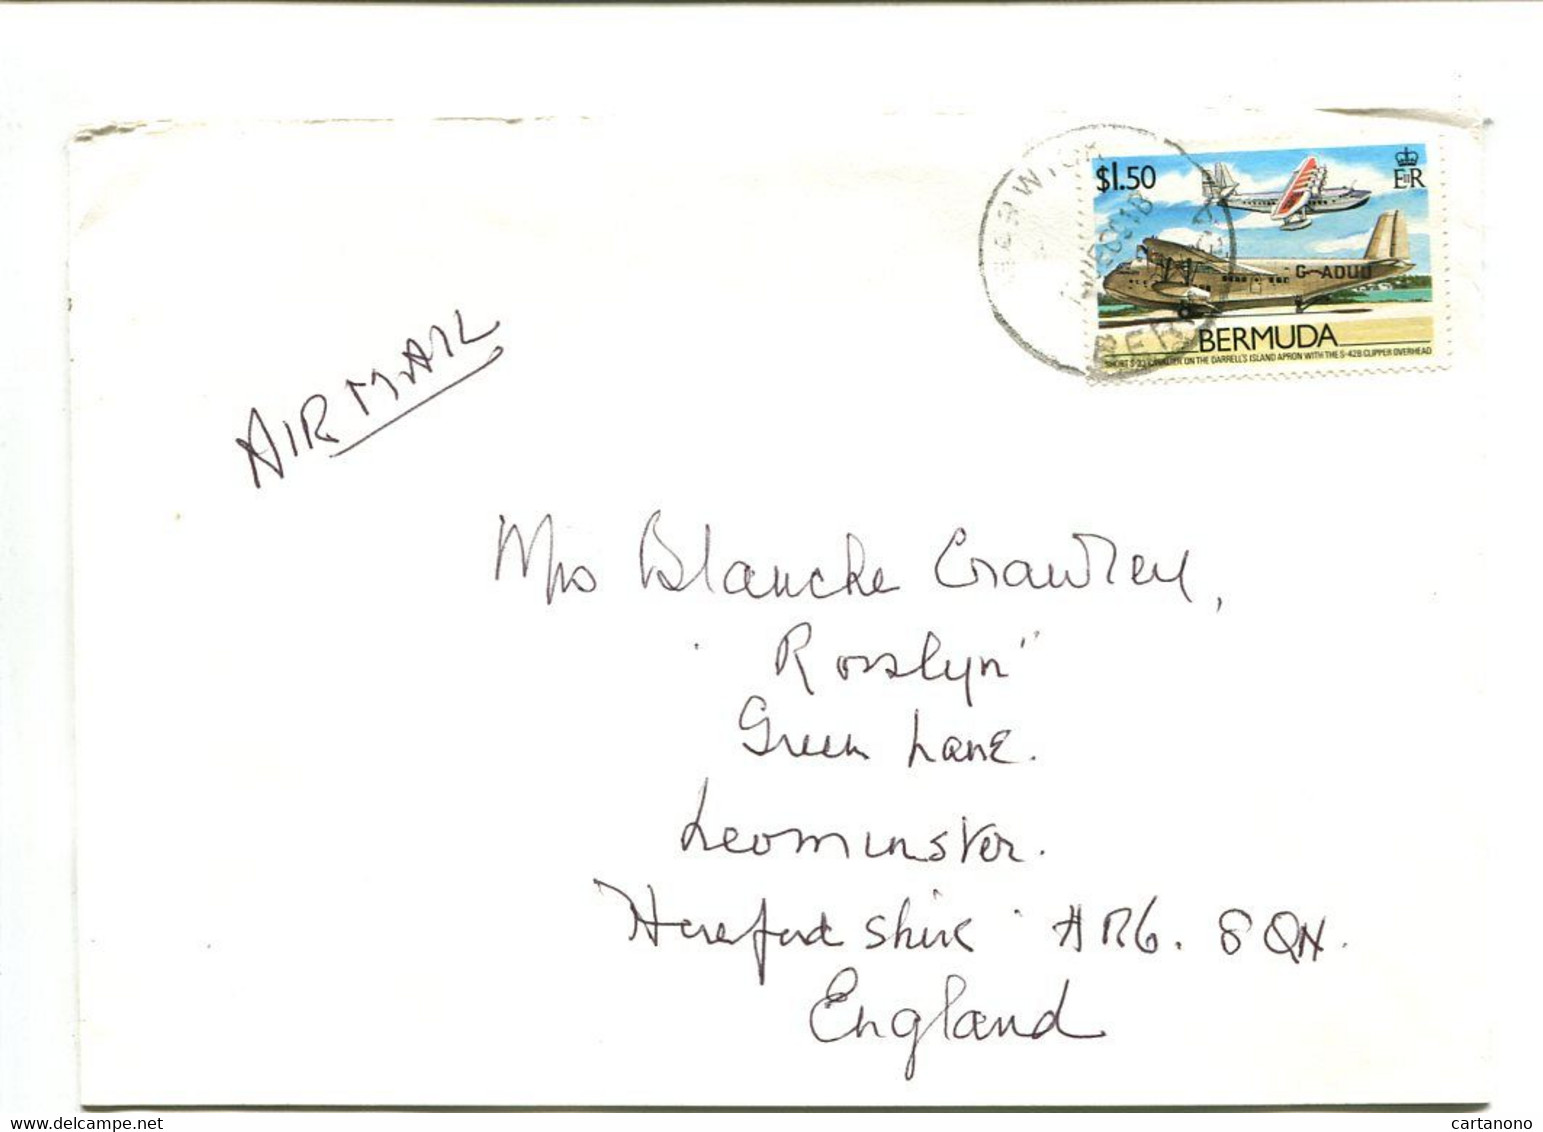 $1.50
E II R
G-ADUU
BERMUDA
SHORT S-23 CAVALIER ON THE DARRELL'S ISLAND APRON WITH THE S-42B CLIPPER OVERHEAD
BERWICK
AIR MAIL
Mrs Blanche Crawley,
"Rosslyn"
Green Lane.
Leominster.
Herefordshire HR6. 8QN.
England
delcampe.net
cartanono